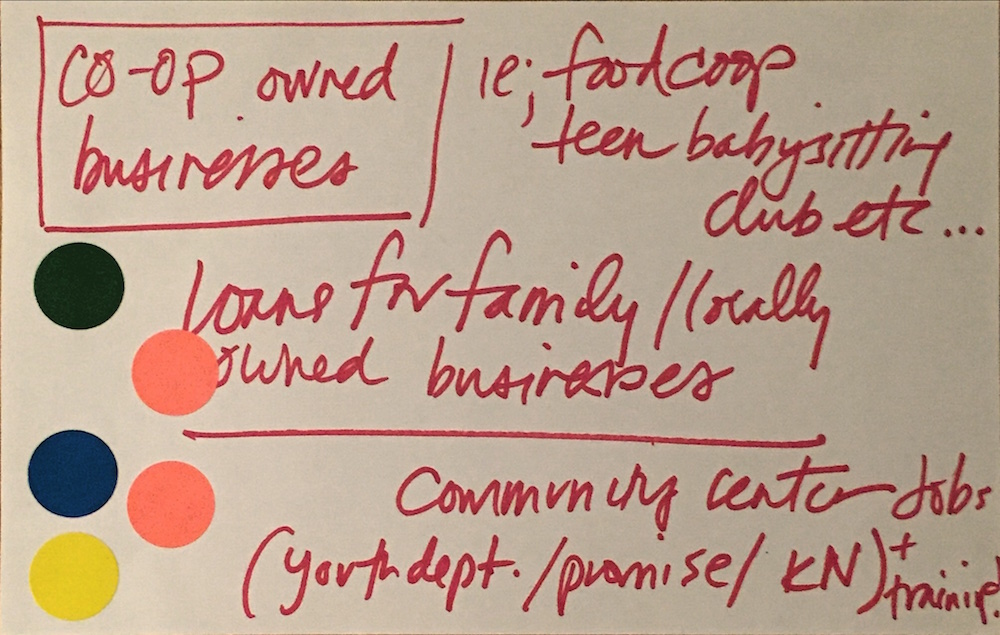 CO-OP owned
businesses
ie; food coop
teen babysitting
club etc...
loans for family / locally
owned businesses
Community center Jobs
(youth dept. / promise / KN) + training!